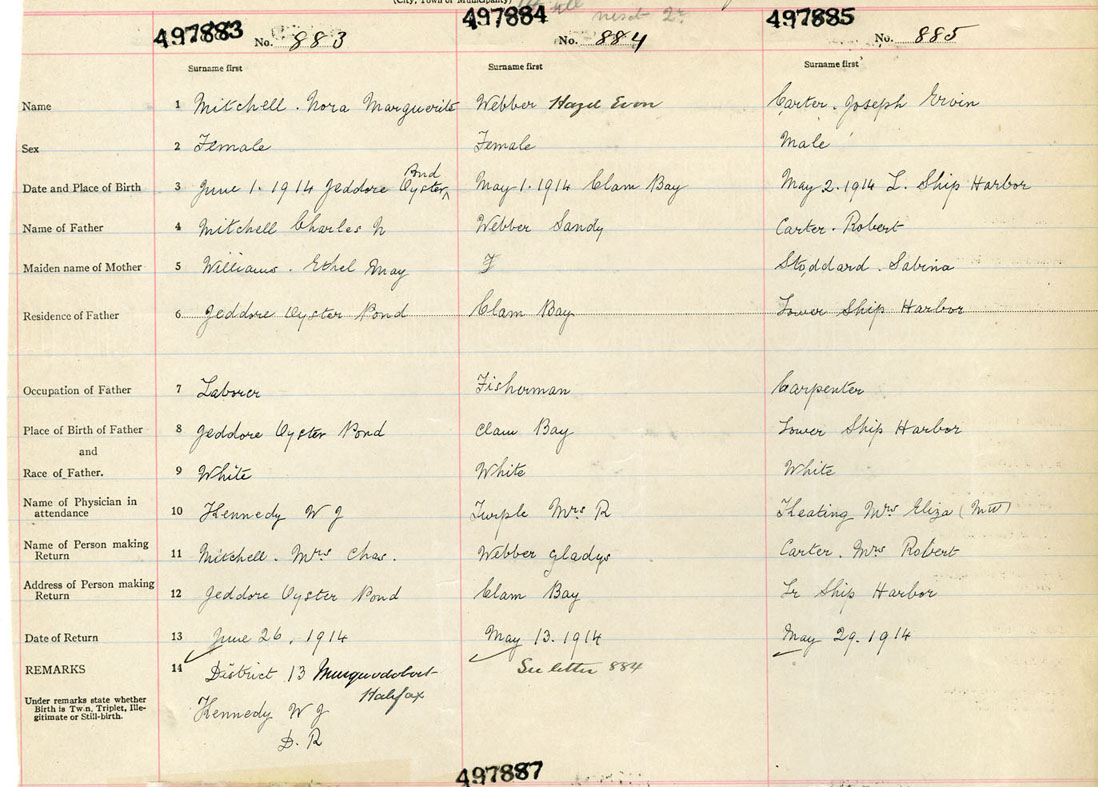 (City, Town or Municipality)
497883 No. 883
497884 No. 884
497885 No. 885
Surname first Surname first Surname first
Name 1 Mitchell. Nora Marguerite Webber Hazel Evon Carter. Joseph Ervin
Sex 2 Female Female Male
Date and Place of Birth 3 June 1. 1914 Jeddore Oyster Pond May 1. 1914 Clam Bay May 2. 1914 L. Ship Harbor
Name of Father 4 Mitchell Charles N Webber Sandy Carter. Robert
Maiden name of Mother 5 Williams. Ethel May Stoddard. Sabina
Residence of Father 6 Jeddore Oyster Pond Clam Bay Lower Ship Harbor
Occupation of Father 7 Laborer Fisherman Carpenter
Place of Birth of Father 8 Jeddore Oyster Pond Clam Bay Lower Ship Harbor
and
Race of Father. 9 White White White
Name of Physician in
attendance 10 Kennedy W J Turple Mrs R Keating Mrs Eliza
Name of Person making
Return 11 Mitchell. Mrs Chas. Webber Gladys Carter. Mrs Robert
Address of Person making
Return 12 Jeddore Oyster Pond Clam Bay Lr Ship Harbor
Date of Return 13 June 26, 1914 May 13. 1914 May 29. 1914
REMARKS 14 District 13 Musquodoboit See letter 884
Halifax
Under remarks state whether
Birth is Twin, Triplet, Ille-
gitimate or Still-birth.
Kennedy W J
D. R
497887